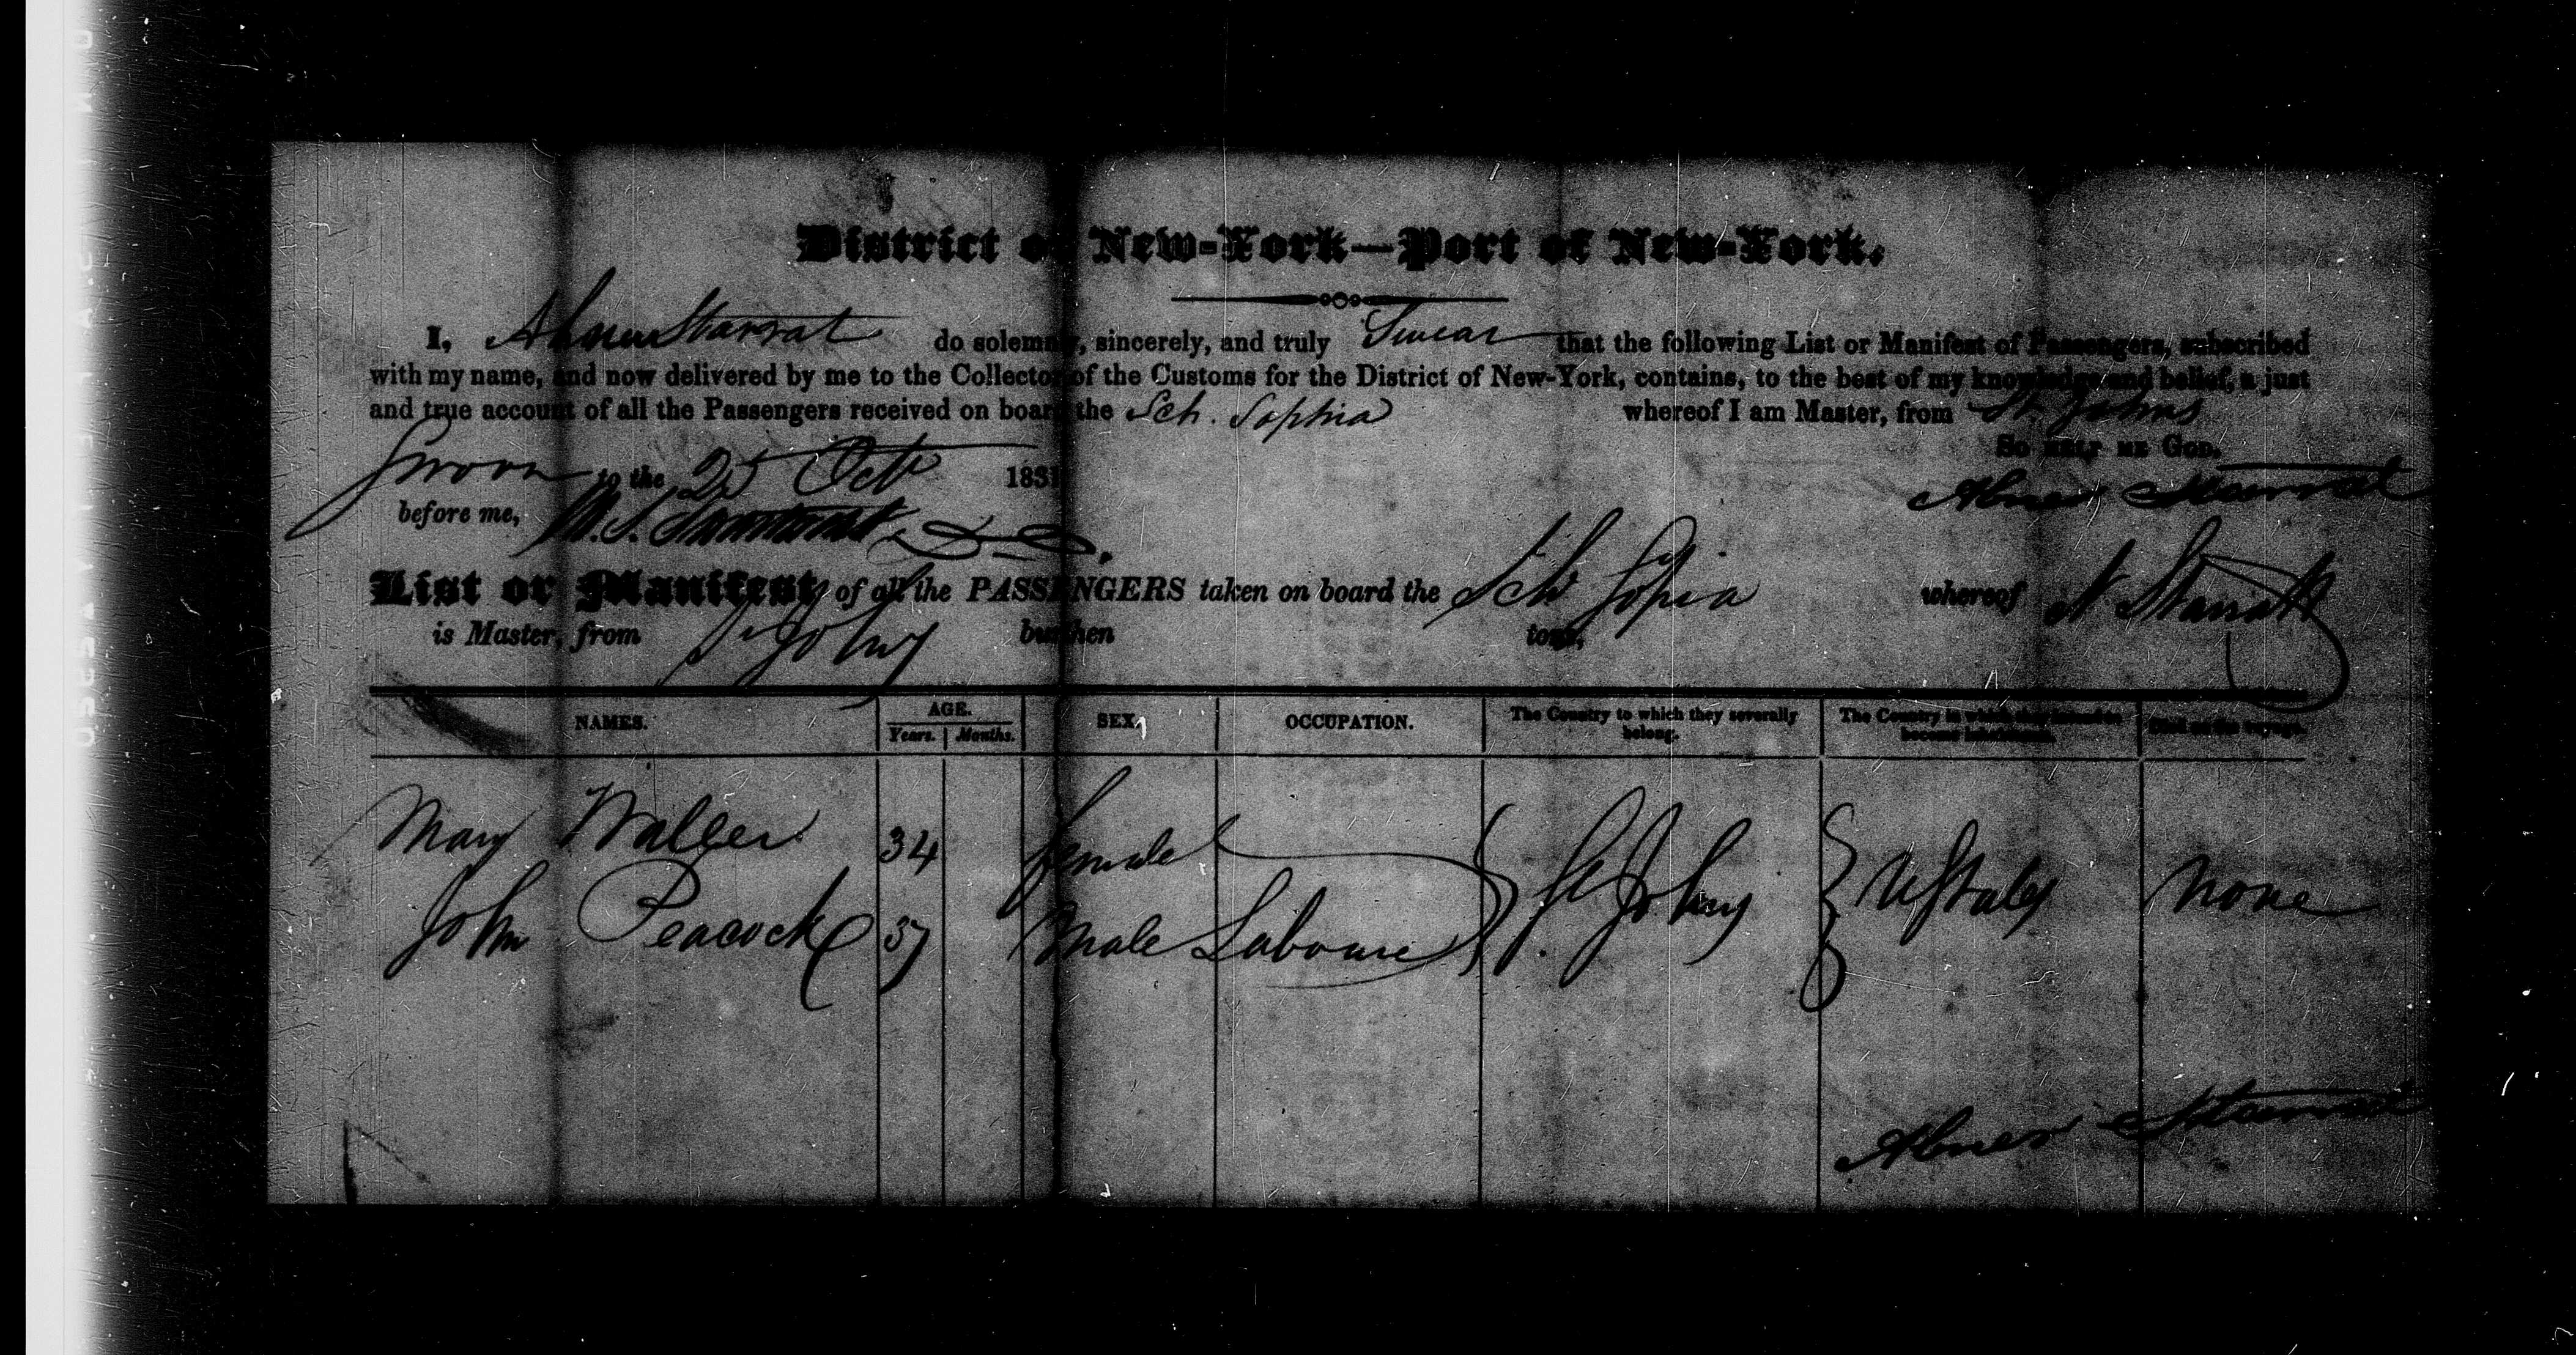 District of New-York—Port of New-York.
I, Abner Starrat do solemnly, sincerely, and truly Swear that the following List or Manifest of Passengers, subscribed
with my name, and now delivered by me to the Collector of the Customs for the District of New-York, contains, to the best of my knowledge and belief, a just
and true account of all the Passengers received on board the Sch. Sophia whereof I am Master, from St. Johns
So help me God.
Sworn to the 25 Oct 183
Abner Starrat
before me,
List or Manifest of all the PASSENGERS taken on board the Sch Sopia whereof A Starratt
is Master, from St Johns burthen tons,
NAMES. AGE. SEX, OCCUPATION. The Country to which they severally belong. The Country in which they intend to become inhabitants. Died on the voyage.
Years. Months.
Mary Waller 34 female
John Peacock 37 Male Laboure St Johns U States None
Abner Starrat